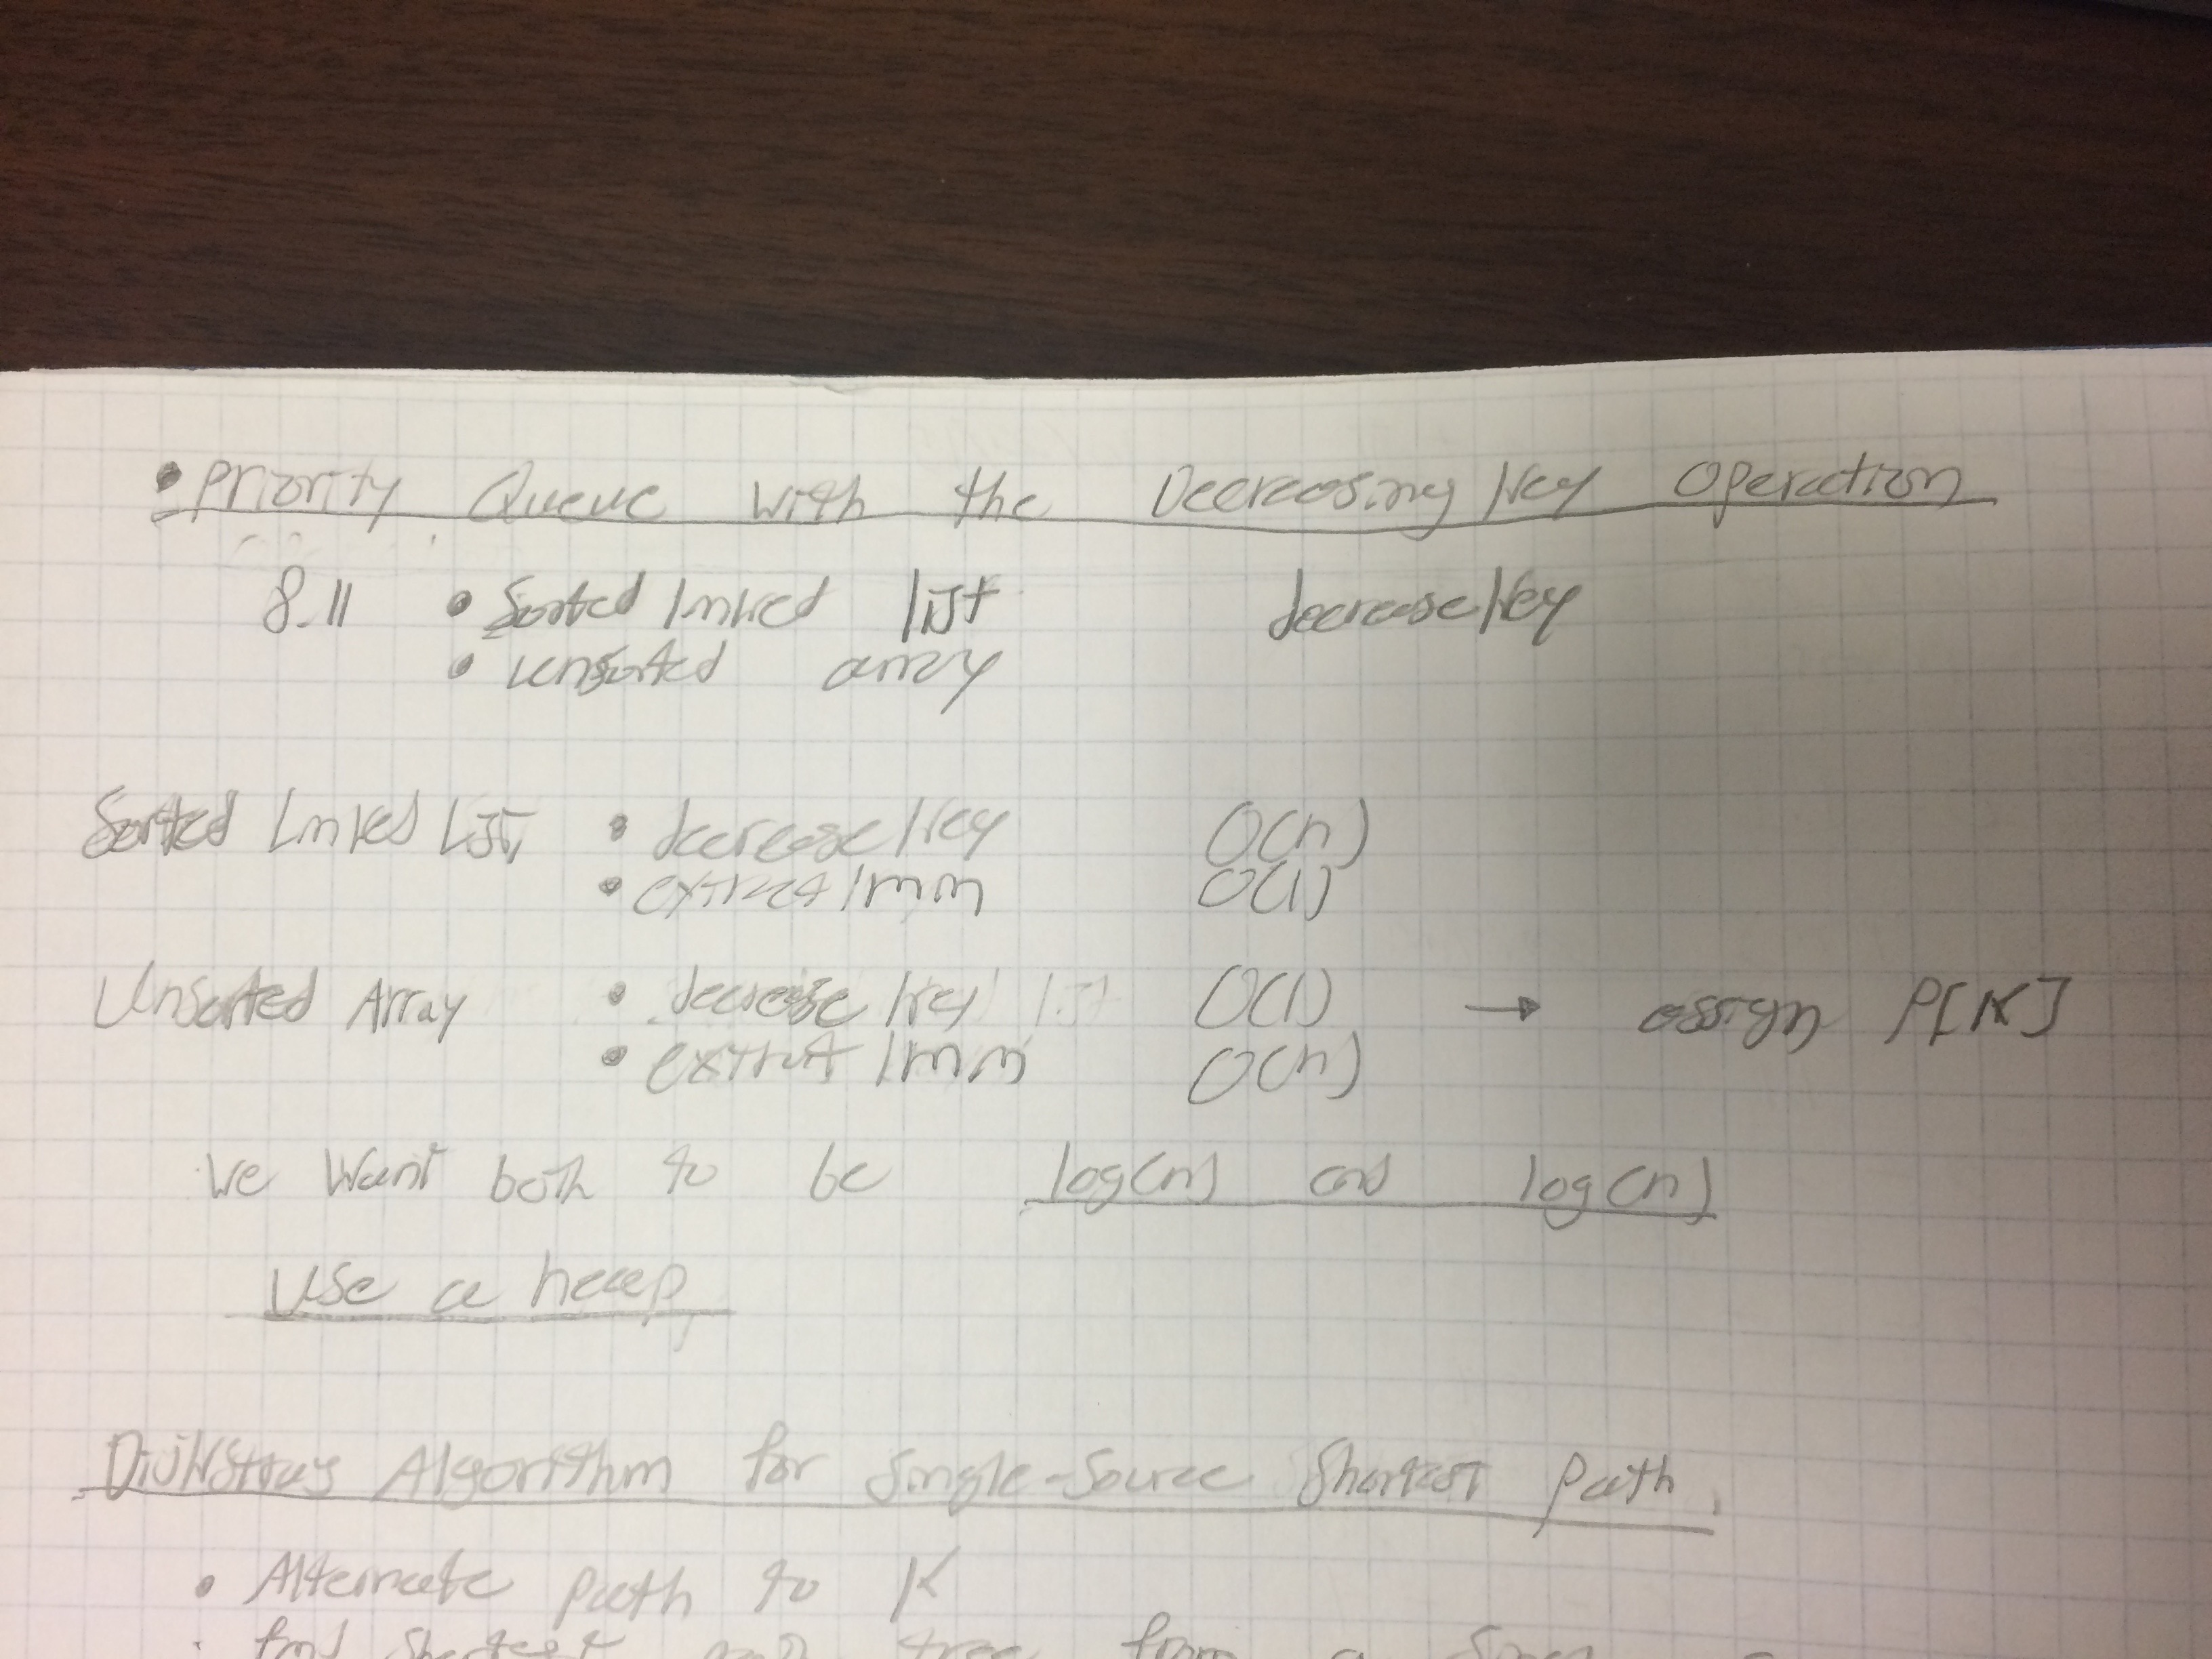 • Priority Queue with the Decreasing Key Operation
8.11 • Sorted linked list decrease key
• unsorted array
Sorted Linked List • decrease key O(n)
• extract min O(1)
Unsorted Array • decrease key list O(1) → assign P[K]
• extract min O(n)
We want both to be log(n) and log(n)
Use a heap
Dijkstras Algorithm for Single-Source Shortest Path.
• Alternate path to K
• find shortest path tree from a